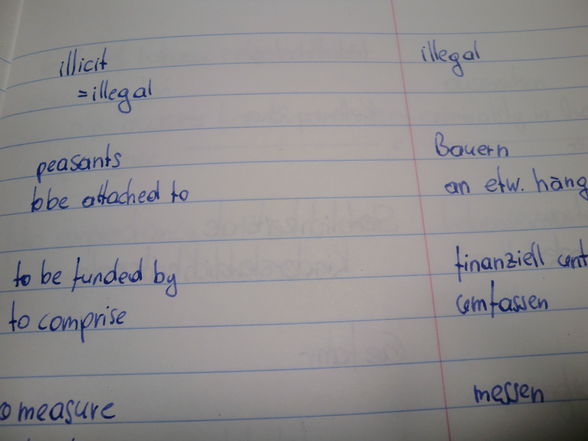 illicit illegal
=illegal
peasants Bauern
tobe attached to an etw. häng
to be funded by finanziell unt
to comprise umfassen
to measure messen